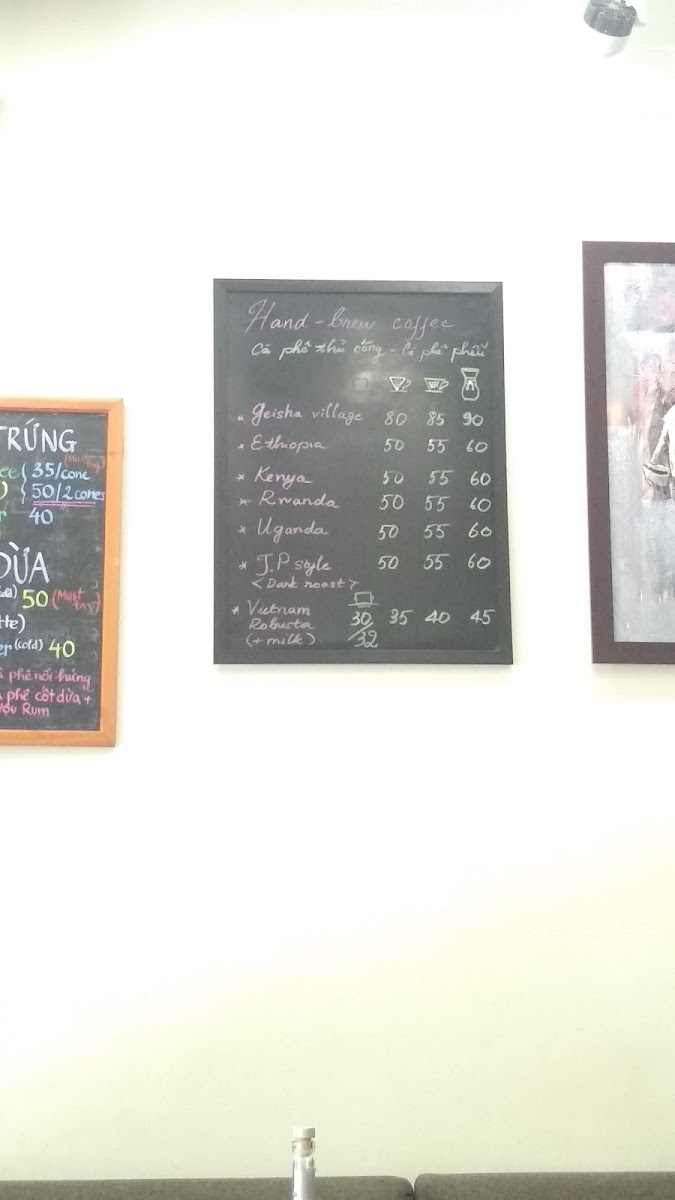 TRỨNG
(Must try)
35/cone
50/2 cones
40
DỪA
50 (Must try)
(cold) 40
phê nổi hứng
phê cốt dừa +
Rum
Hand-brew coffee
Cà phê thủ công - Cà phê phối
* Geisha village 80 85 90
* Ethiopia 50 55 60
* Kenya 50 55 60
* Rwanda 50 55 60
* Uganda 50 55 60
* J.P style 50 55 60
<Dark roast>
* Vietnam 30 35 40 45
Robusta
(+ milk) /32